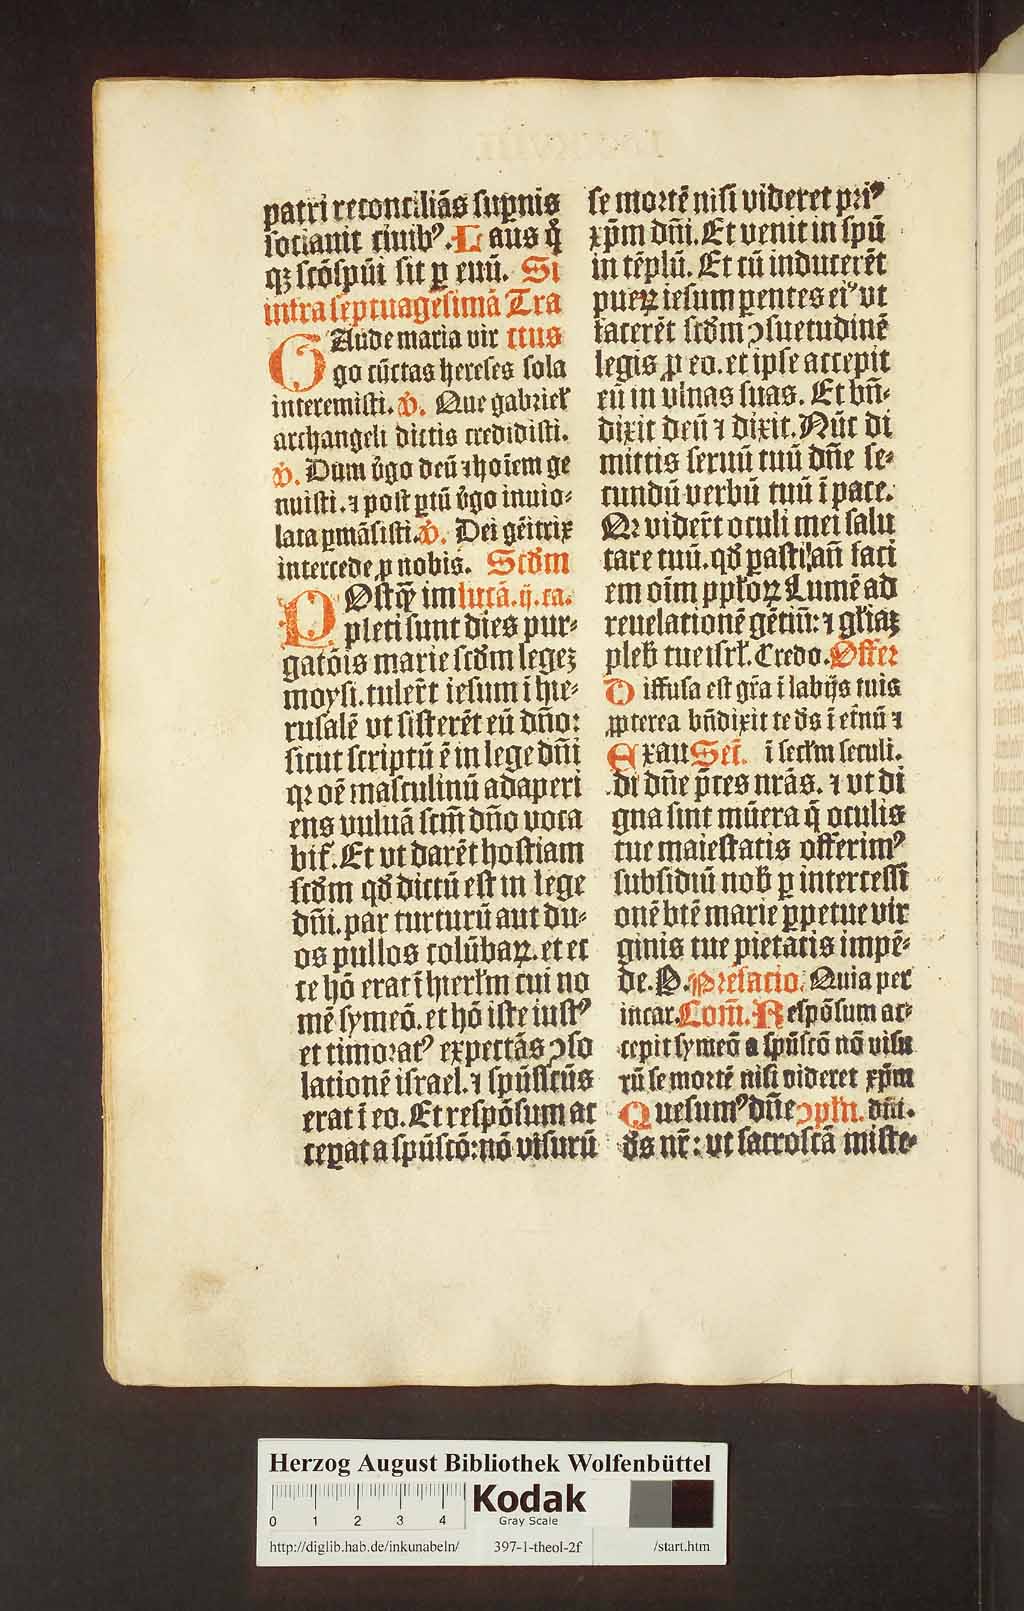 patri reconciliās sup̱nis
sociauit ciuibꝰ. Laus q̊
qꝫ scōspūi sit ꝑ euū. Si
intra septuagesimā Tra
GAude maria vir ctus
go cūctas hereses sola
interemisti. v̓. Que gabriel̓
archangeli dictis credidisti.
v̓. Dum v̓go deū ⁊ hoīem ge
nuisti. ⁊ post ꝑtū v̓go inuio⸗
lata ꝑmāsisti. v̓. Dei gēitrix
intercede ꝓ nobis. Scd̓m
POstq̄ꝫ im lucā. ij. ca.
pleti sunt dies pur⸗
gatōis marie scd̓m legeꝫ
moysi. tuler̄t iesum ī hie⸗
rusalē vt sisterēt eū dn̄o:
sicut scriptū ē in lege dn̄i
qꝛ oē masculinū adaperi
ens vuluā scm̄ dn̄o voca
bit̄. Et vt darēt hostiam
scd̓m qd̓ dictū est in lege
dn̄i. par turturū aut du⸗
os pullos colūbaꝝ. et ec
ce hō erat ī hierl̓m cui no
mē symeō. et hō iste iustꝰ
et timoratꝰ expectās ꝯso
lationē israel. ⁊ spūsscūs
erat ī eo. Et respōsum ac
ceperat a spūscō: nō visurū
se mortē nisi videret priꝰ
xp̄m dn̄i. Et venit in spū
in tēplū. Et cū inducerēt
pueꝝ iesum ꝑentes eiꝰ vt
facerēt scd̓m ꝯsuetudinē
legis ꝓ eo. et ipse accepit
eū in vlnas suas. Et bn̄⸗
dixit deū ⁊ dixit. Nūc di
mittis seruū tuū dn̄e se⸗
cundū verbū tuū ī pace.
Qꝛ vider̄t oculi mei salu
tare tuū. qd̓ ꝑasti an̄ faci
em oīm ppl̓oꝝ Lumē ad
reuelationē gētiū: ⁊ gl̓iaꝫ
pleb̓ tue isrl̓. Credo. Offer
Diffusa est gr̄a ī labijs tuis
ꝓpterea bn̄dixit te d̓s ī et̄nū ⁊
Exau Sec̄. ī secl̓m seculi.
di dn̄e p̄ces nrās. ⁊ vt di
gna sint mūera q̄ oculis
tue maiestatis offerimꝰ
subsidiū nob̓ ꝑ intercessi
onē btē marie ꝑpetue vir
ginis tue pietatis impē⸗
de. P. Prefacio. Quia per
incar. Com̄. Respōsum ac⸗
cepit symeō a spūscō nō visu
rū se mortē nisi videret xp̄m
Quesumꝰ dn̄e ꝯpl̓n. dn̄i.
d̓s nr̄: vt sacroscā miste⸗
Herzog August Bibliothek Wolfenbüttel
0 1 2 3 4
Kodak
Gray Scale
http://diglib.hab.de/inkunabeln/ 397-1-theol-2f /start.htm